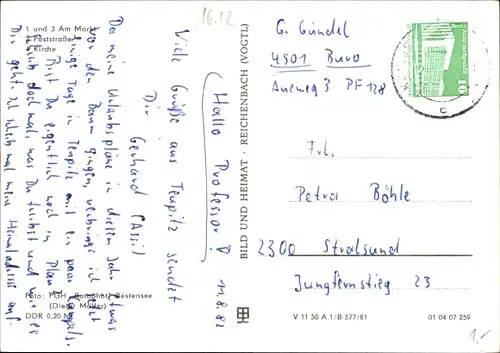 16.12
1 und 3 Am Markt
2 Poststraße
4 Kirche
Hallo Professor!
11.8.82
Viele Grüße aus Teupitz sendet
Dir
Gerhard
Da meine Urlaubspläne in diesem Jahr etwas
vor den Baum gingen, verbringe ich jetzt
einige Tage in Teupitz mit ein paar Kumpels.
Bist Du eigentlich noch in
Schreib doch mal, was Du treibst und wie es
Dir geht. Ich schreib mal meine Heimatadresse auf.
Foto: PGH Rotophot, Bestensee
(Dieter Möller)
DDR 0,20 M
BILD UND HEIMAT · REICHENBACH (VOGTL)
G. Gündel
4501 Buro
Aueweg 3 PF 128
10
Frl.
Petra Böhle
2300 Stralsund
Jungfernstieg 23
V 11 50 A 1/B 577/81
01 04 07 259
1.-